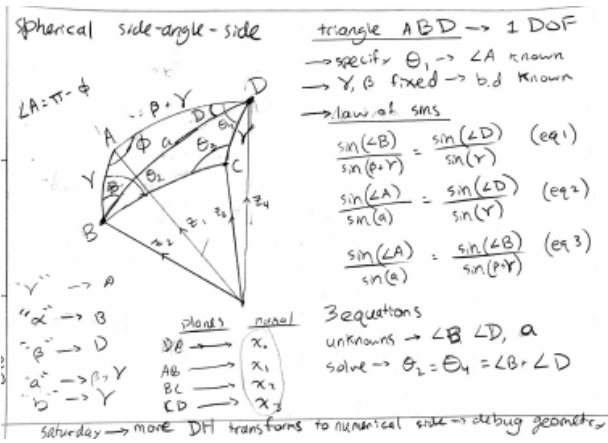 spherical side-angle-side
∠A = π - ϕ
β + γ
D
D
a
A
ϕ
θ4
γ
θ3
C
γ
B
θ2
B
z1
z2
z3
z4
"γ" → A
"α" → B
"β" → D
"a" → β+γ
"b" → γ
planes normal
DB → x0
AB → x1
BC → x2
CD → x3
triangle ABD → 1 DOF
→ specify θ1 → ∠A known
→ γ, β fixed → b.d known
→ law of sins
sin(∠B) / sin(β+γ) = sin(∠D) / sin(γ) (eq1)
sin(∠A) / sin(a) = sin(∠D) / sin(γ) (eq2)
sin(∠A) / sin(a) = sin(∠B) / sin(β+γ) (eq3)
3 equations
unknowns → ∠B ∠D, a
solve → θ2 = θ4 = ∠B + ∠D
saturday → more DH transforms to numerical side → debug geometry